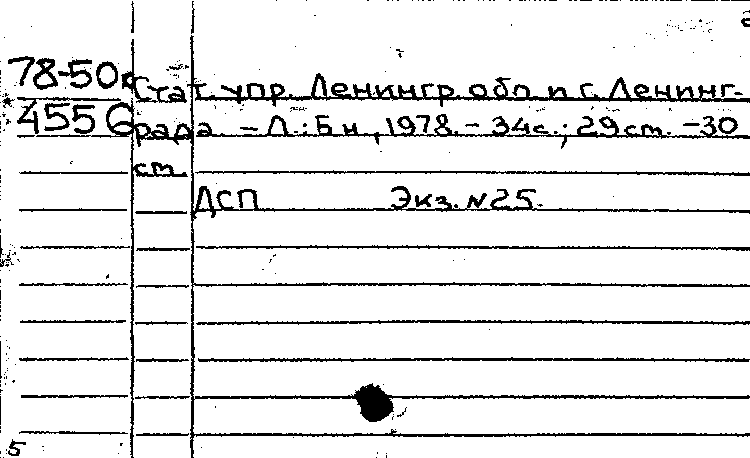 78-50к Стат. упр. Ленингр. обл и г. Ленинг-
4556 рада. - Л.: Б и, 1978. - 34с.; 29 ст. - 30
ст.
ДСП Экз. №25.
5